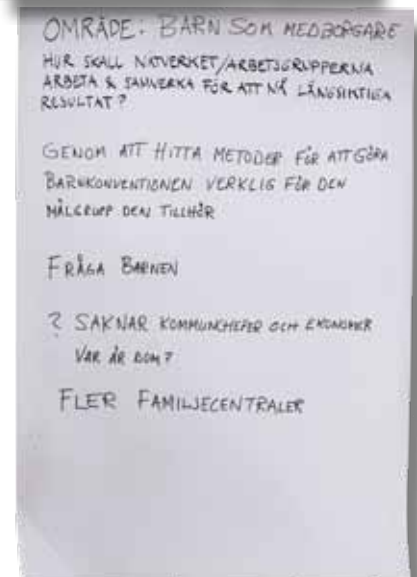 OMRÅDE: BARN SOM MEDBORGARE
HUR SKALL NÄTVERKET/ARBETSGRUPPERNA
ARBETA & SAMVERKA FÖR ATT NÅ LÅNGSIKTIGA
RESULTAT?
GENOM ATT HITTA METODER FÖR ATT GÖRA
BARNKONVENTIONEN VERKLIG FÖR DEN
MÅLGRUPP DEN TILLHÖR
FRÅGA BARNEN
? SAKNAR KOMMUNCHEFER OCH EKONOMER
VAR ÄR DOM?
FLER FAMILJECENTRALER